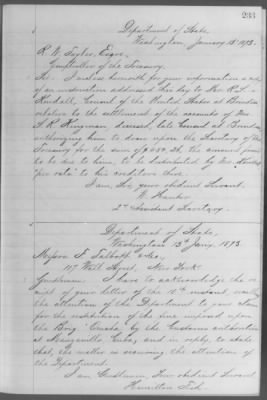 233
Department of State,
Washington, January 13th 1873.
R. W. Tayler, Esqre,
Comptroller of the Treasury.
Sir: I enclose herewith for your information a copy
of an instruction addressed this day to
Consul of the United States at
relative to the settlement of the accounts of Mr.
deceased, late Consul at
authorizing him to draw upon the Secretary of the
Treasury for the sum of the amount found
to be due to him, to be distributed by Mr.
"pro rata" to his creditors there.
I am, Sir, your obedient Servant,
W. Hunter
2nd Assistant Secretary.
Department of State,
Washington 13th Jany, 1873
Messrs
117 Wall Street, New York
Gentlemen: I have to acknowledge the re-
ceipt of your letter of the 10th instant, recalling
the attention of the Department to your claim
for the restitution of the fine imposed upon
the Brig by the Customs authorities
at Manzanillo, Cuba, and in reply, to state
that the matter is receiving the attention of
the Department.
I am, Gentlemen, Your obedient Servant
Hamilton Fish